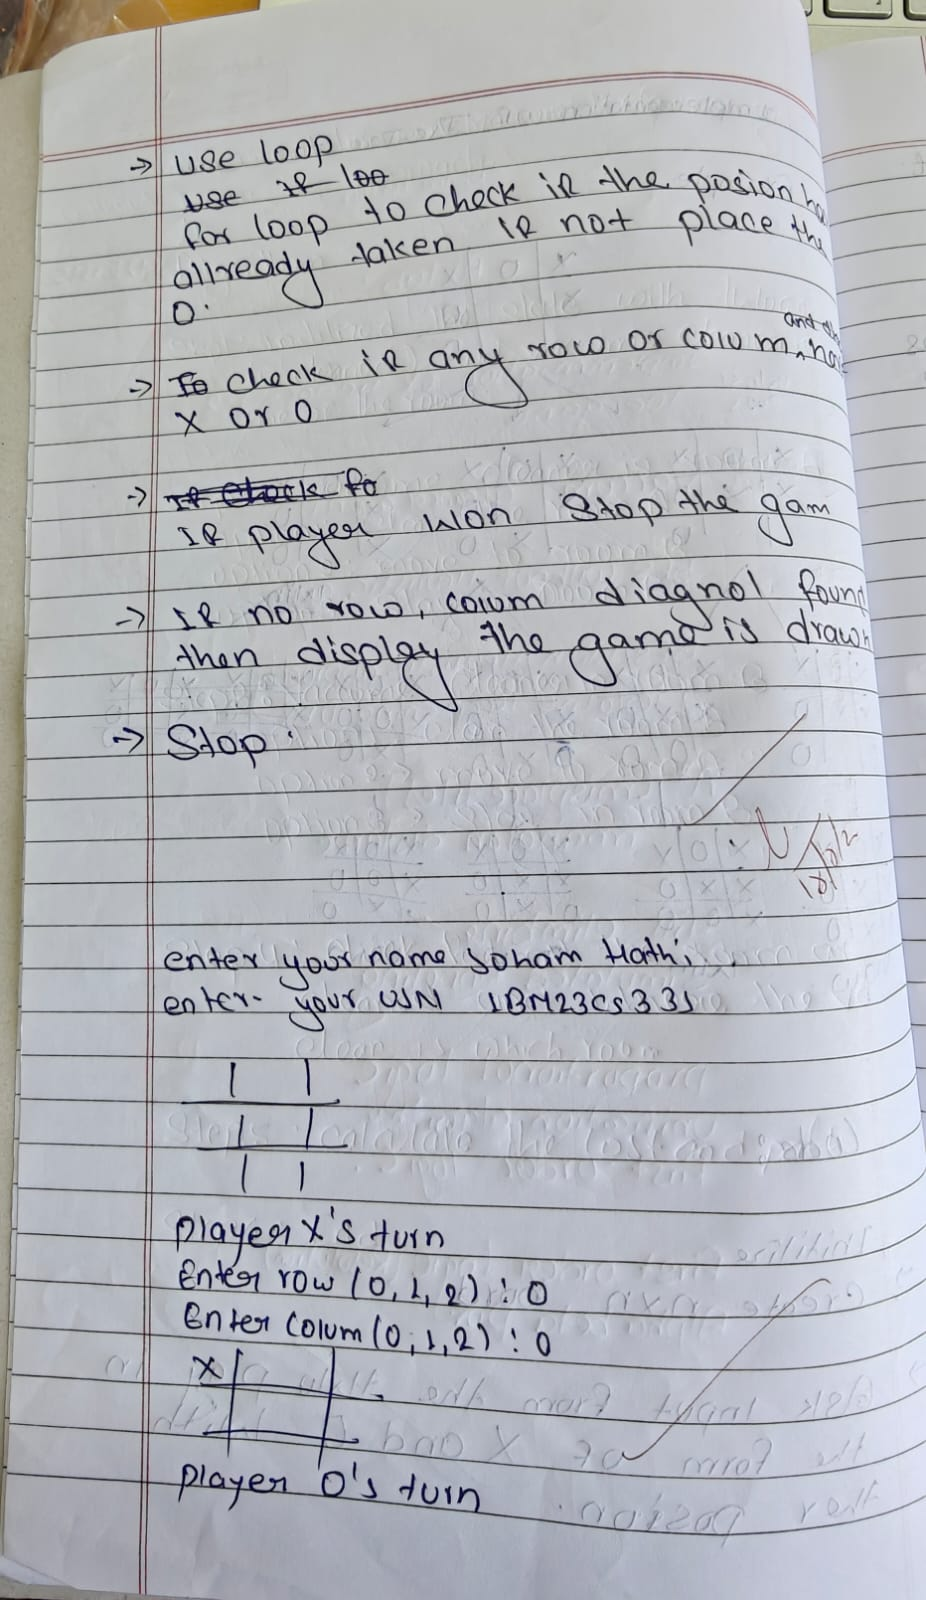 → use loop
use if loo
for loop to check if the posion ha
allready taken if not place the
O.
and di
→ To check if any row or colum, ha
X Or O
→ If Check fo
If player won Stop the gam
→ If no row, colum diagnol found
then display the game is drawn
→ Stop.
enter your name Soham Hathi
enter your USN 1BM23CS331
Player X's turn
Enter row (0, 1, 2) : 0
Enter Colum (0, 1, 2) : 0
X
Player O's turn